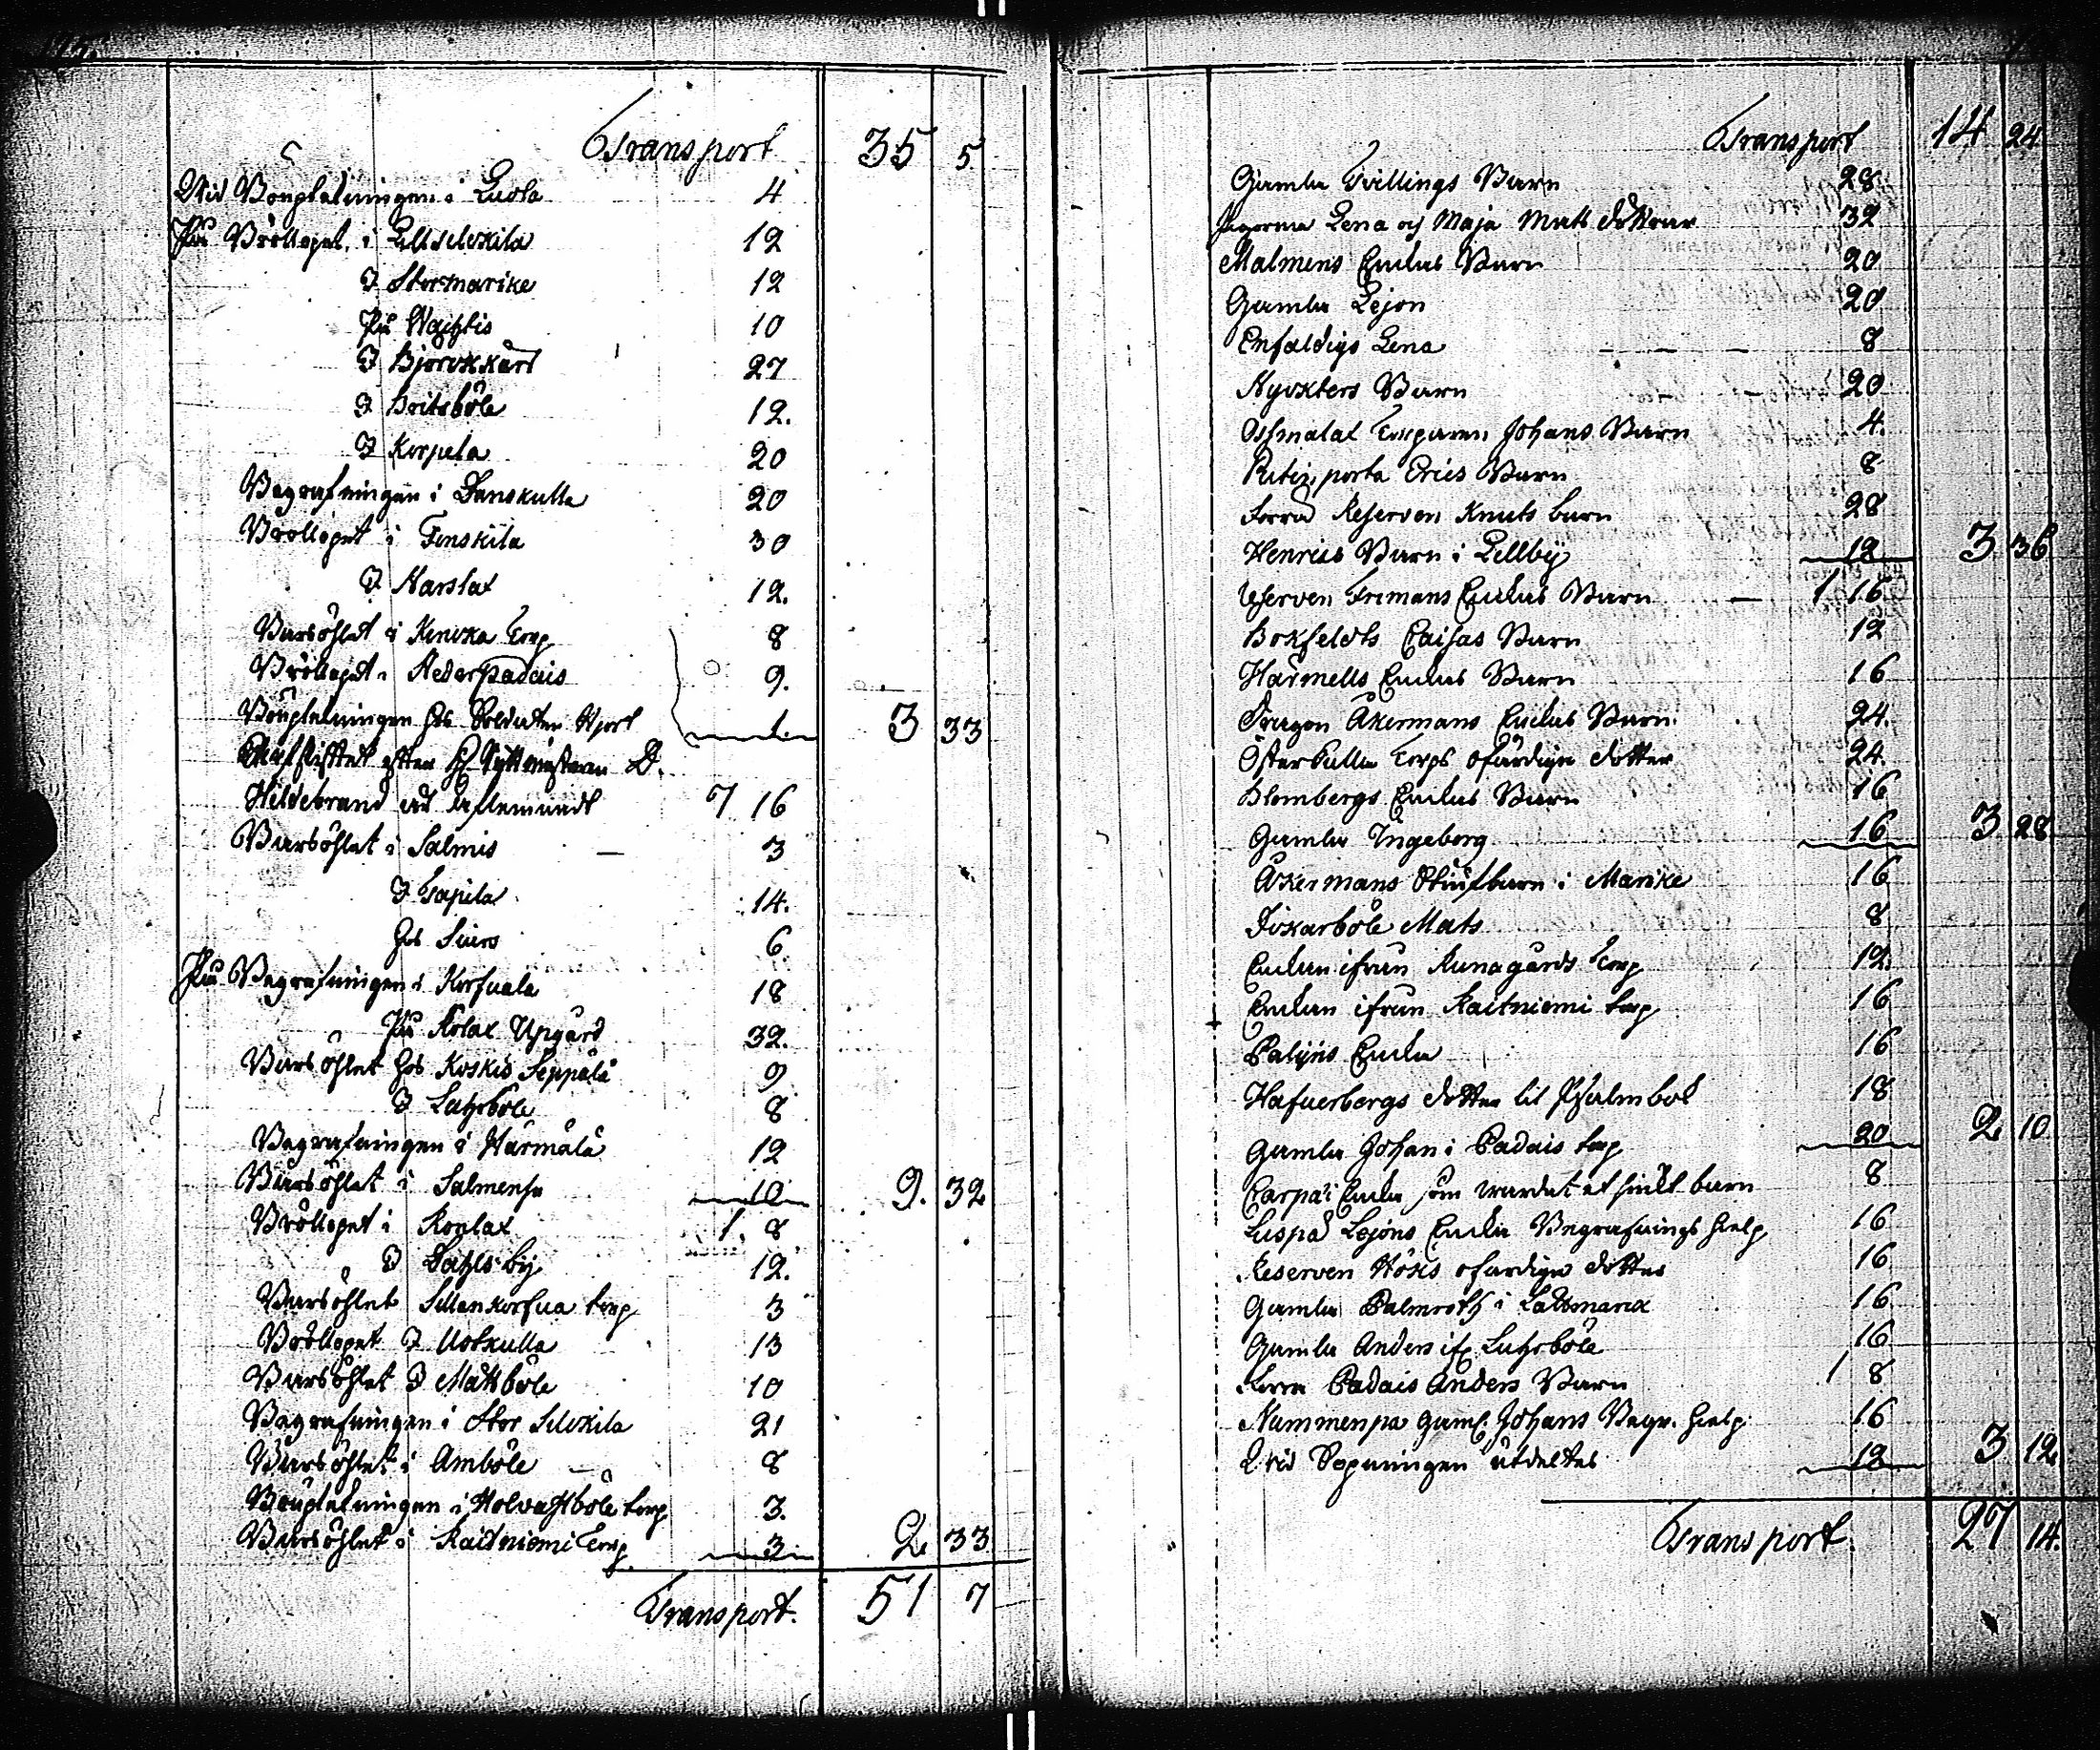 Transport 35 5
Wid Bouptekningen i Luola 4
På Bröllopet i Lill Selvkila 12
I Stormarike 12
På Wachtis 10
I Björckkärr 27
I Britsböle 12.
I Korpela 20
Begrafningen i Danskulla 20
Bröllopet i Finskila 30
I Harslax 12.
Barsöhlet i Torp 8
Bröllopet i Nederpadais 9.
Bouptekningen hos Soldaten Hjort 1. 3 33
efter H. Ryttmästaren D.
Hildebrand 7 16
Barsöhlet i Salmis 3
I Tapila 14.
hos Siurs 6
På Begrafningen i Korfuala 18
På Rolax Upgård 32.
Barsöhlet hos Koskis Seppälä 9
I Lutzböle 8
Begrafningen i Härmälä 12
Barsöhlet i Salmensu 10 9. 32
Bröllopet i Ronlax 1. 8
I Dahlsby 12.
Barsöhlet Sillankorfua torp 3
Bröllopet I Uotkulla 13
Barsöhlet I Mattböle 10
Begrafningen i Stor Selvkila 21
Barsöhlet i Amböle 8
Bouptekningen i Holvastböle torp 3.
Barsöhlet i Raitniemi Torp 3 2. 33
Transport. 51 7
Transport 14 24
Gamla Tvillings Barn 28
Lena och Maja Matts döttrar 32
Malmens Enkas Barn 20
Gamla Lejon 20
Enfaldige Lena 8
Ryckters Barn 20
Torparen Johans Barn 4.
Erics Barn 8
Förra Reserven Knuts barn 28
Henrics Barn i Lillby 12 3 36
Reserven Frimans Enkas Barn 1 16
Bokfeldts Caisas Barn 12
Harmells Enkas Barn 16
Dragon Åkermans Enkas Barn 24.
Österkulla Torps ofärdige dotter 24.
Blombergs Enkas Barn 16
Gamla Ingeborg 16 3 28
Åkermans Stiufbarn i Marike 16
Fiskarböle Mats 8
Enkan ifrån Runagårds Torp 12.
Enkan ifrån Raitniemi torp 16
Palijns Enka 16
Hafuerbergs dotter til Psalmbok 18
Gamla Johan i Padais torp 20 2. 10
Carpa i Enka som wårdat et siukt barn 8
Luspa Lejons Enka Begrafnings hielp 16
Reserven Höks ofärdige dotter 16
Gamla Palmroth i Lattmark 16
Gamla Anders if. Lutzböle 16
Förra Padais Anders Barn 1 8
Nummenpä Gaml. Johans Begr. hielp 16
wid Sopningen utdeltes 12 3 12.
Transport. 27 14.